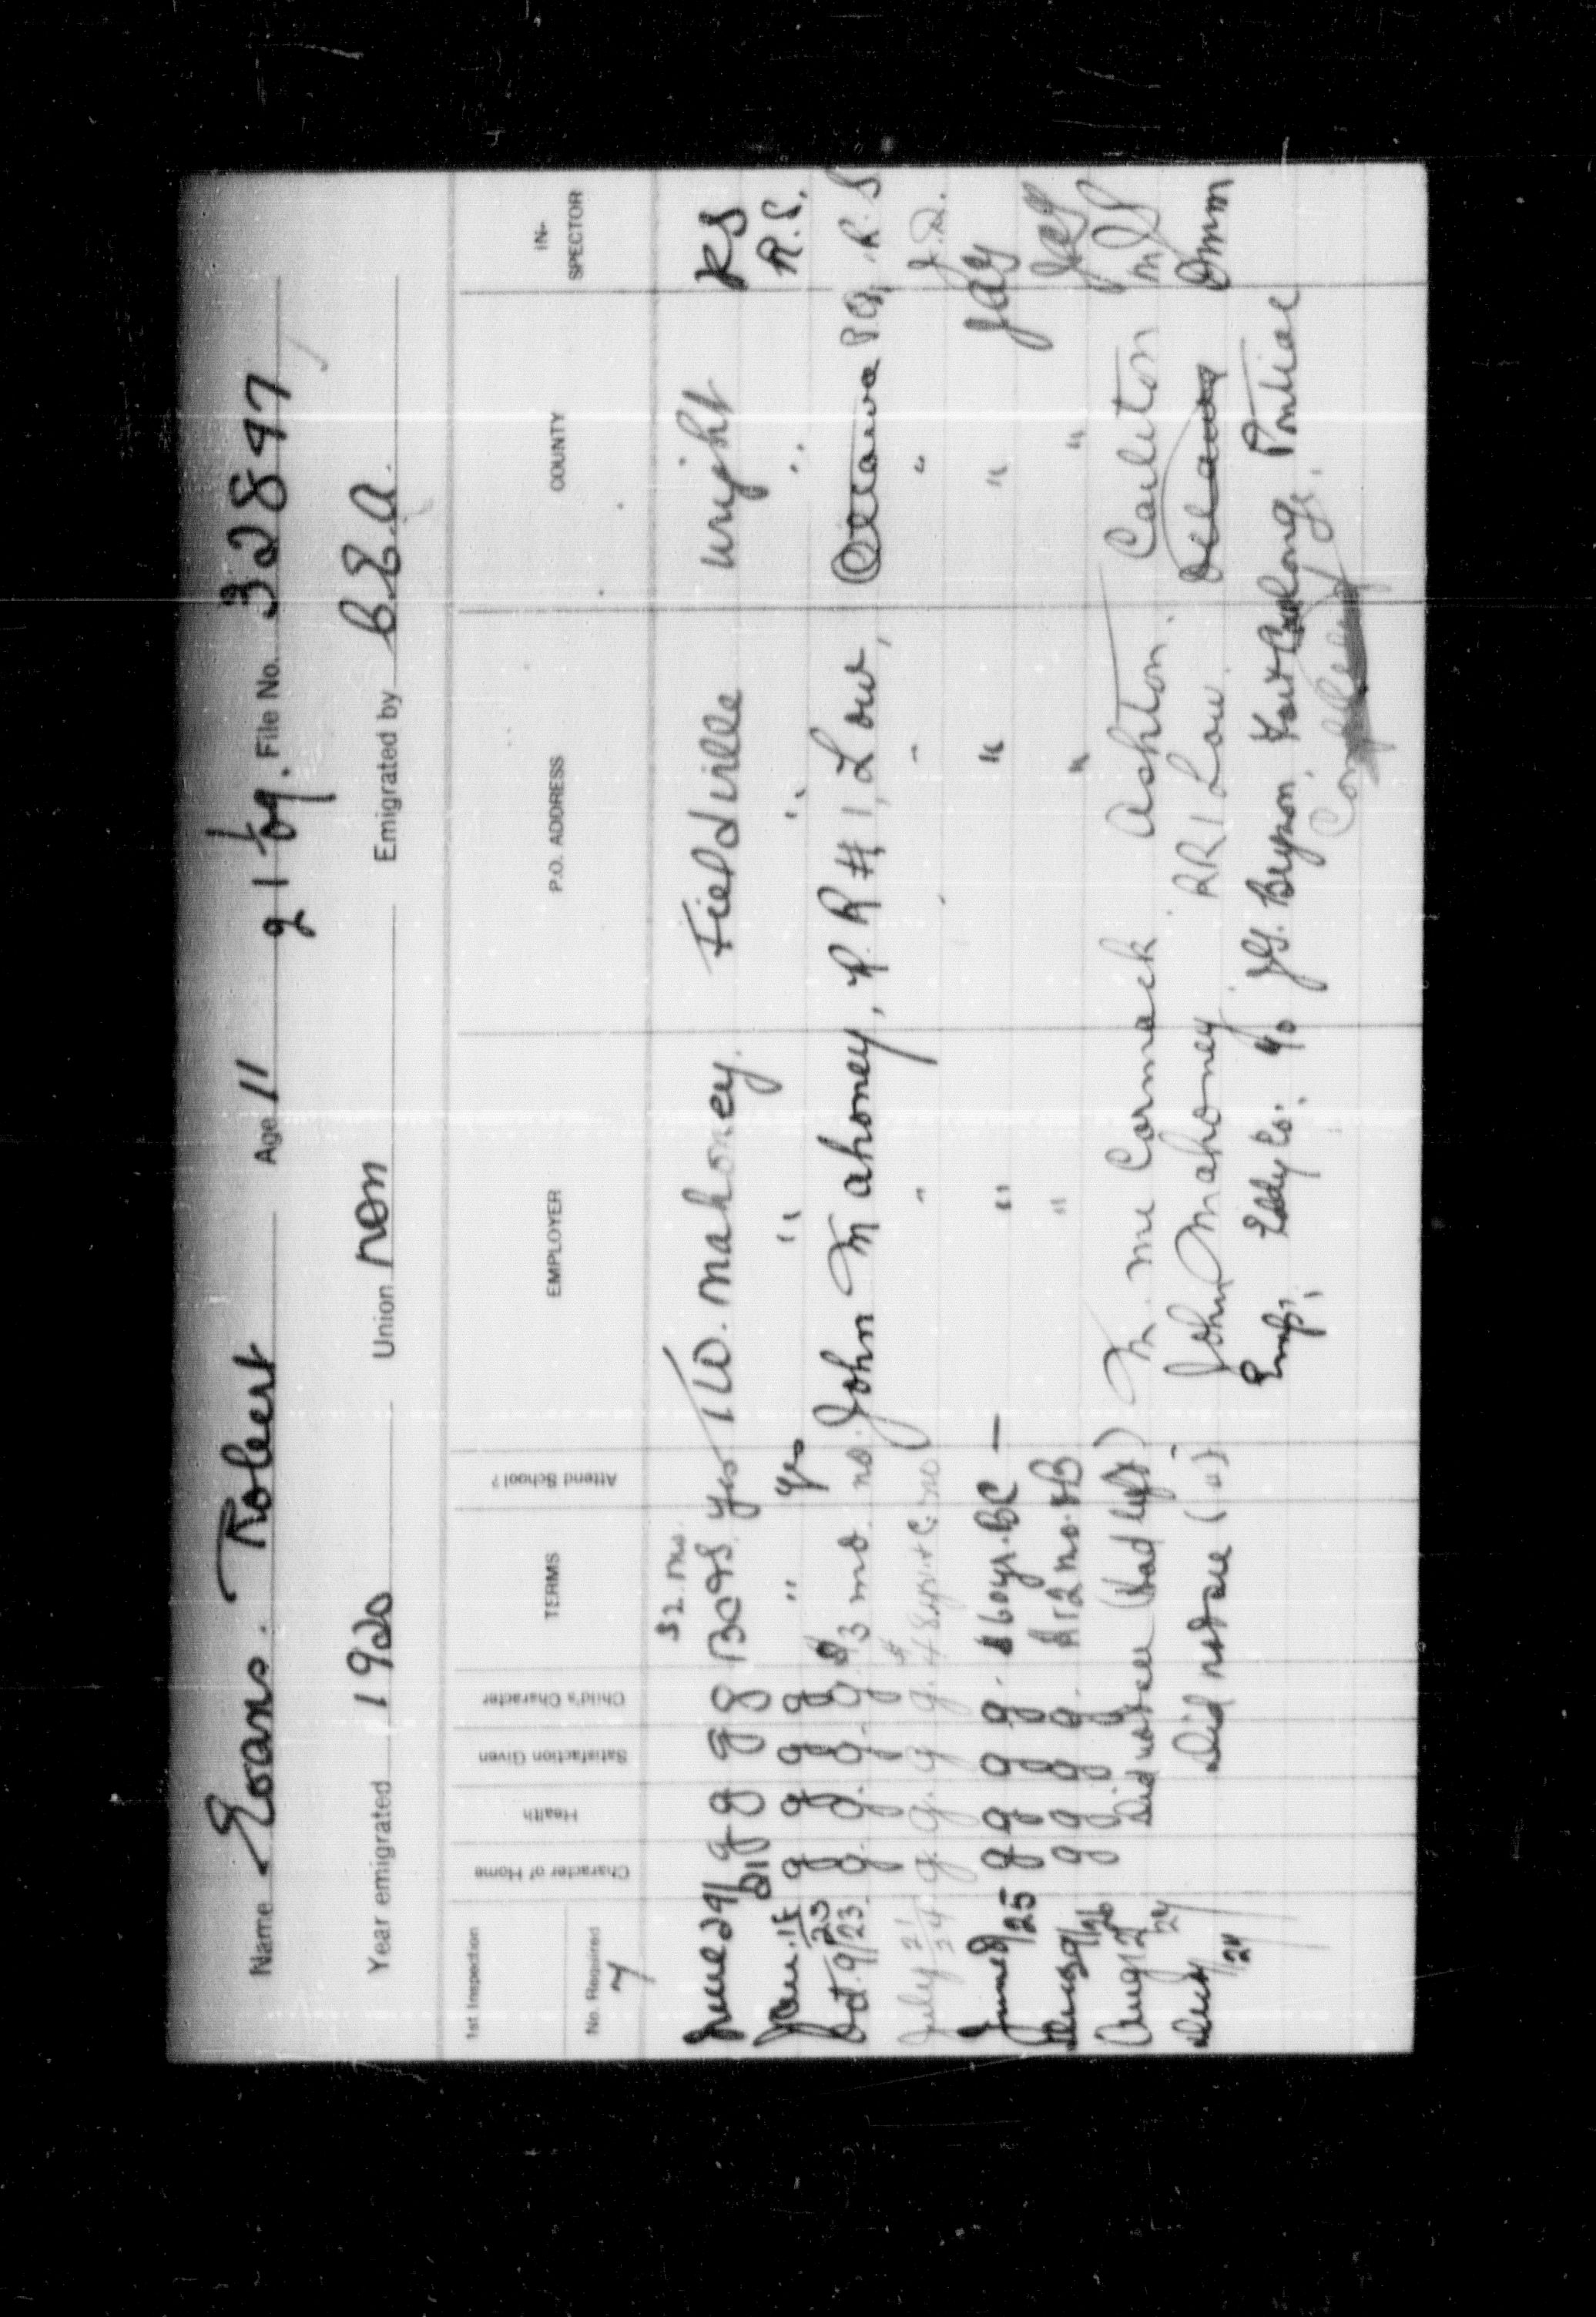 Name Evans. Robert Age 11 9 1/09. File No. 32897
Year emigrated 1920 Union non Emigrated by C.E.A.
1st Inspection
No. Required
7
Character of Home Health Satisfaction Given Child's Character TERMS Attend School? EMPLOYER P.O. ADDRESS COUNTY IN-SPECTOR
$2 mo.
June 29/21 g g g g BC&S yes W. Mahoney. Fieldville Wright RS
Jan. 15/23 g g g g " yes " " " R.S.
Oct. 9/23. g. g. g. g. $3 mo. no. John Mahoney, R.R #1, Low, Ottawa P.Q. R.S
July 21/24 g. g. g g. no " " " J.D.
June 9/25 g g g g. $60 yr. BC — " " " JAY
g g g g. $12 mo. " " "
Aug 12/27 Did not see (Had left) M. McCormack Ashton. Carleton
Did not see ( " ) John Mahoney RR1 Low. Ottawa
Empl. Eddy Co. c/o J.G. Bryson, Fort Coulonge, Pontiac